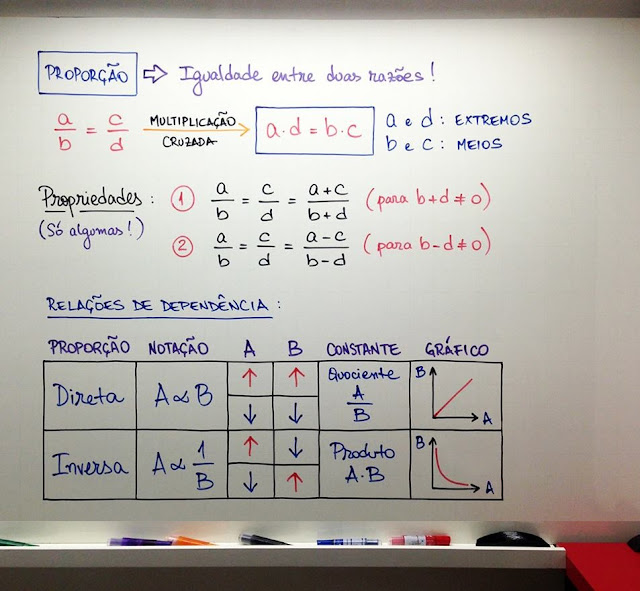 PROPORÇÃO ⇨ Igualdade entre duas razões!
a/b = c/d MULTIPLICAÇÃO CRUZADA → a·d = b·c
a e d: EXTREMOS
b e c: MEIOS
Propriedades: ① a/b = c/d = a+c/b+d (para b+d ≠ 0)
(Só algumas!)
② a/b = c/d = a-c/b-d (para b-d ≠ 0)
RELAÇÕES DE DEPENDÊNCIA:
PROPORÇÃO NOTAÇÃO A B CONSTANTE GRÁFICO
Direta A ∝ B ↑ ↑ ↓ ↓ Quociente A/B B A
Inversa A ∝ 1/B ↑ ↓ ↓ ↑ Produto A·B B A